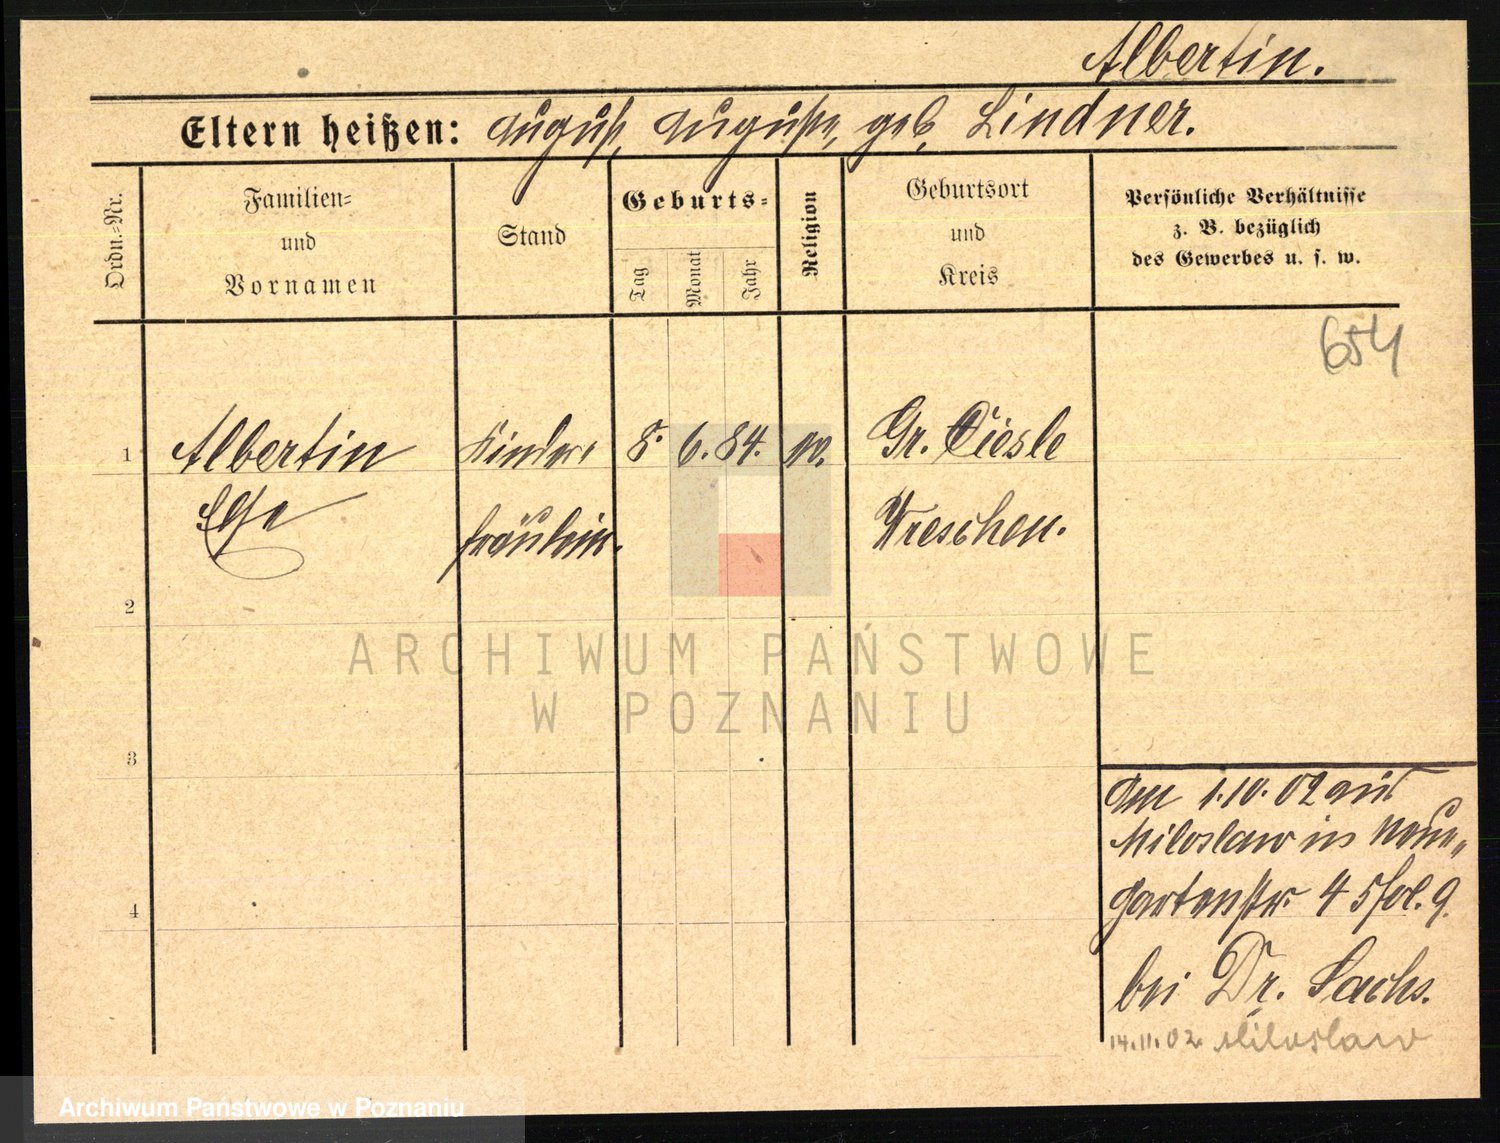 Albertin.
Eltern heißen: August, Auguste, geb. Lindner.
Ordn.-Nr.
Familien-
und
Vornamen
Stand
Geburts-
Tag
Monat
Jahr
Religion
Geburtsort
und
Kreis
Persönliche Verhältnisse
z. B. bezüglich
des Gewerbes u. s. w.
654
1 Albertin Kinder- 8. 6. 84. Gr. Ciesle
Else fräulein. Wreschen.
2
ARCHIWUM PAŃSTWOWE
W POZNANIU
3
Am 1.10.02 aus
Miloslaw in Neue-
Gartenstr. 4 5 fol. 9.
4
bei Dr. Sachs.
14.11.02. Miloslaw
Archiwum Państwowe w Poznaniu